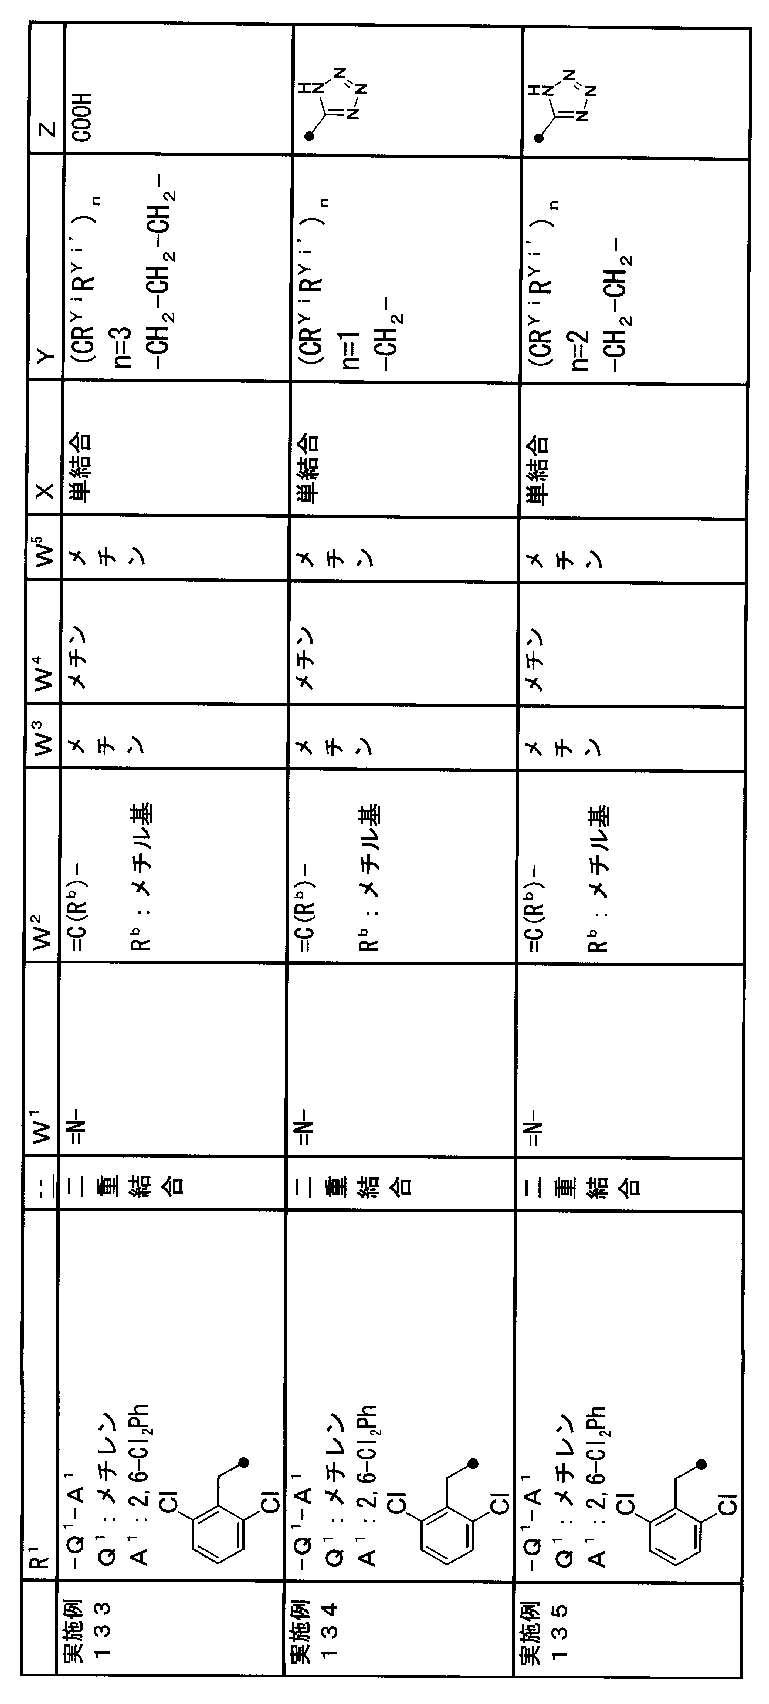 R¹
二
W¹
W²
W³
W⁴
W⁵
X
Y
Z
実施例
１３３
-Q¹-A¹
Q¹：メチレン
A¹：2,6-Cl₂Ph
Cl
Cl
二
重
結
合
=N-
=C(Rᵇ)-
Rᵇ：メチル基
メ
チ
ン
メチン
メ
チ
ン
単結合
(CRʸⁱRʸⁱ’)ₙ
n=3
-CH₂-CH₂-CH₂-
COOH
実施例
１３４
-Q¹-A¹
Q¹：メチレン
A¹：2,6-Cl₂Ph
Cl
Cl
二
重
結
合
=N-
=C(Rᵇ)-
Rᵇ：メチル基
メ
チ
ン
メチン
メ
チ
ン
単結合
(CRʸⁱRʸⁱ’)ₙ
n=1
-CH₂-
H
N
N
N
N
実施例
１３５
-Q¹-A¹
Q¹：メチレン
A¹：2,6-Cl₂Ph
Cl
Cl
二
重
結
合
=N-
=C(Rᵇ)-
Rᵇ：メチル基
メ
チ
ン
メチン
メ
チ
ン
単結合
(CRʸⁱRʸⁱ’)ₙ
n=2
-CH₂-CH₂-
H
N
N
N
N